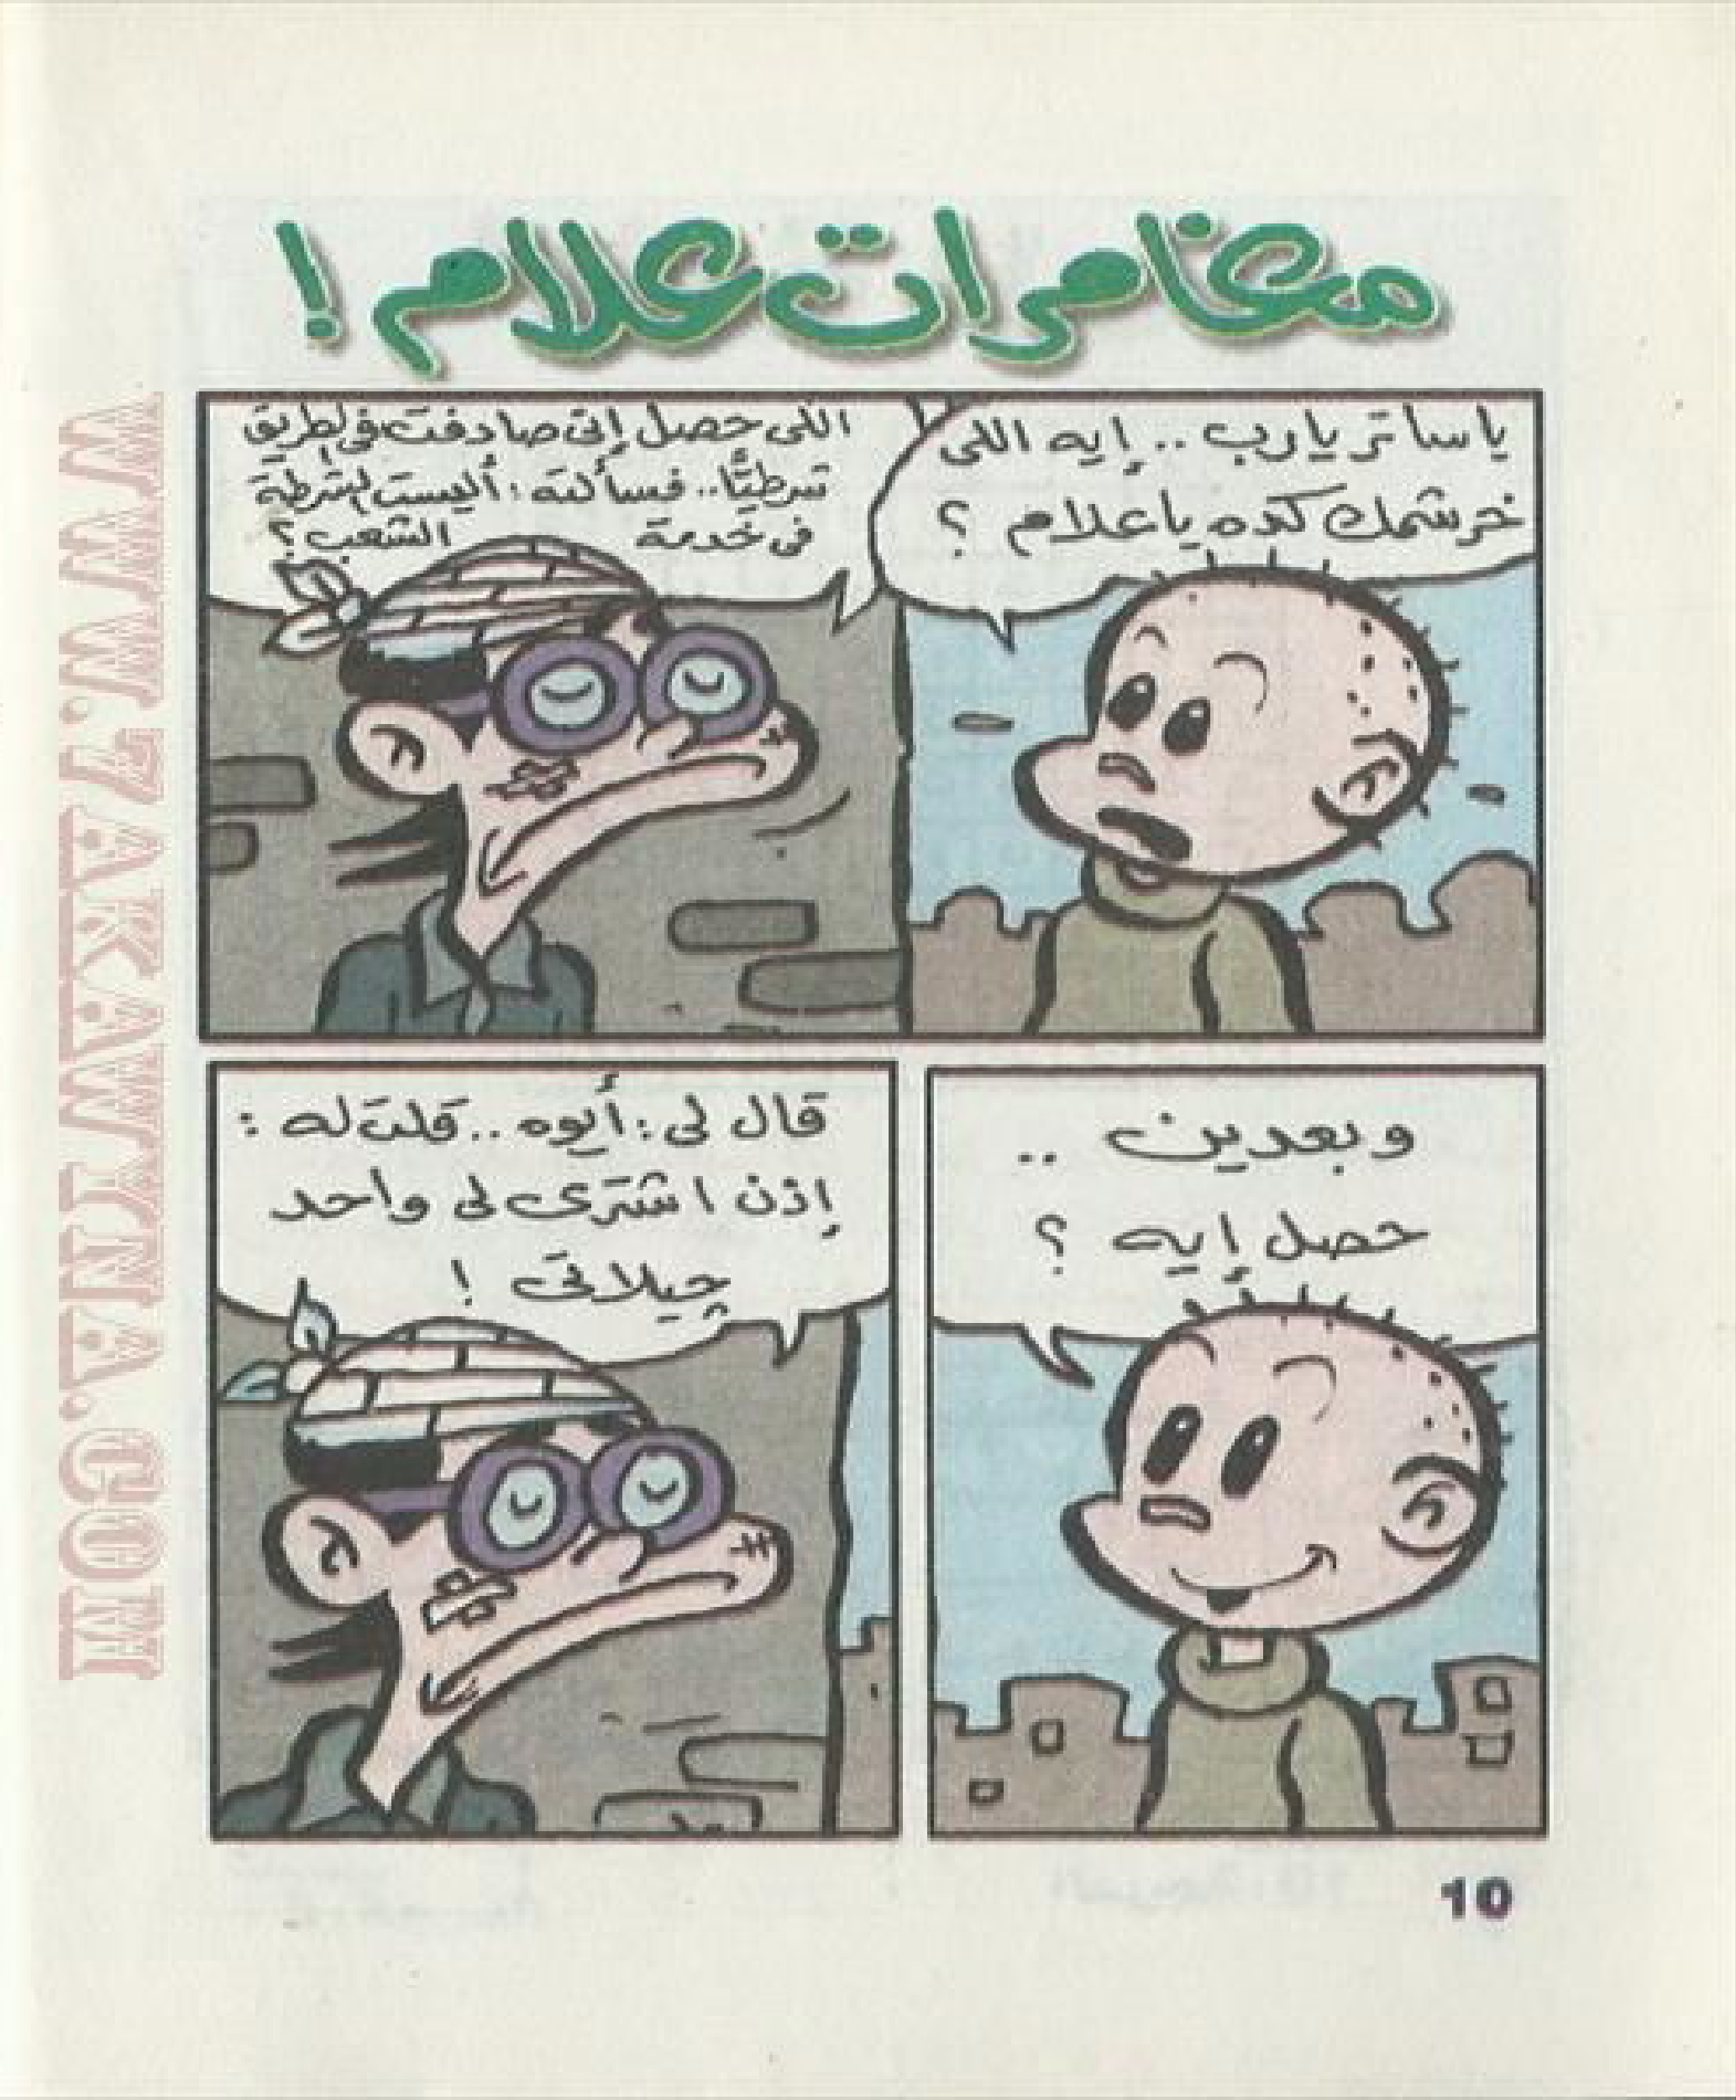 مغامرات علام !
ياساتر يارب .. إيه اللى
خرشمك كده ياعلام ؟
اللى حصل إنى صادفت فى الطريق
شرطيًّا .. فسألته : أليست الشرطة
فى خدمة الشعب ؟
وبعدين ..
حصل إيه ؟
قال لى : أيوه .. قلت له :
إذن اشترى لى واحد
چيلاتى !
10
WWW.7AKAWTNA.COM